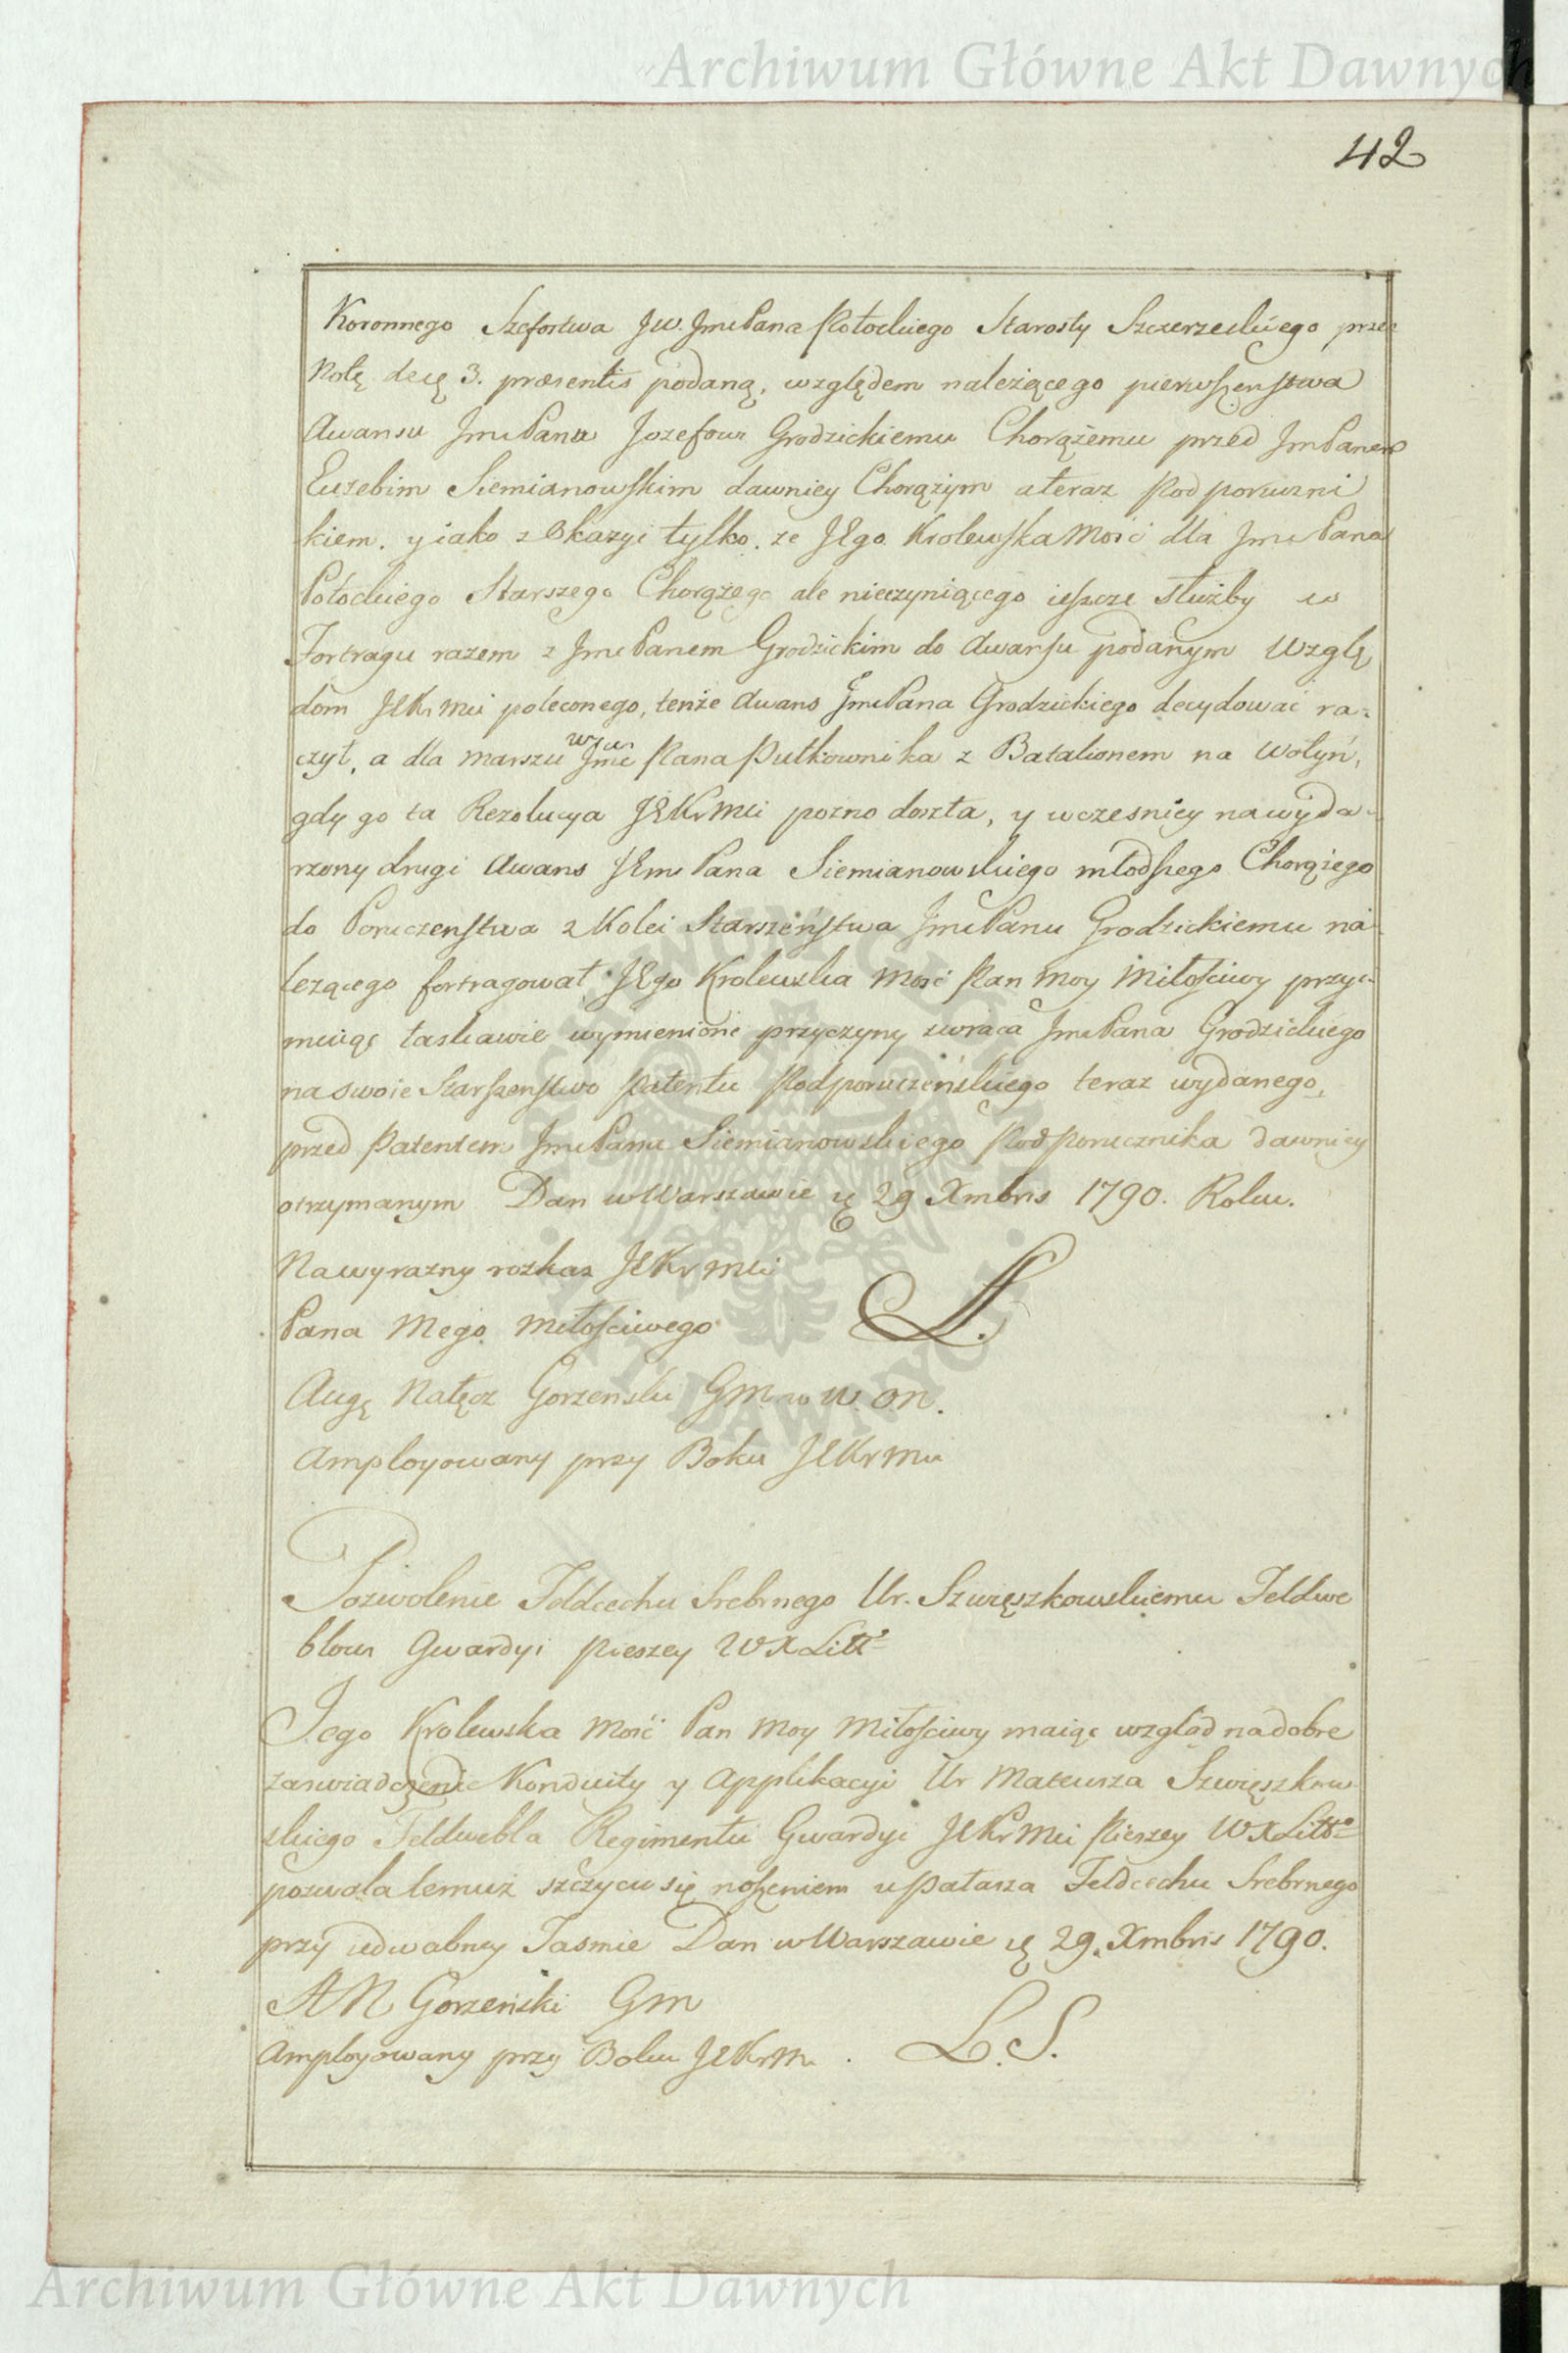 Archiwum Główne Akt Dawnych
42
Koronnego Szefostwa JW. JmcPana Potockiego Starosty Szczerzeckiego, przez
Notę de 3. præsentis podaną, względem należącego pierwszenstwa
Awansu JmcPanu Jozefowi Grodzickiemu Chorążemu przed JmPanem
Euzebim Siemianowskim dawniey Chorążym a teraz Podporuczni
kiem. y iako z Okazyi tylko. ze JEgo Krolewska Mość dla JmcPana
Potockiego Starszego Chorążego ale nieczyniącego ieszcze służby w
Fortragu razem z JmcPanem Grodzickim do Awansu podanym Wzglę
dom JEKrMci poleconego, tenże Awans JmcPana Grodzickiego decydować ra-
czył, a dla marszu Jmc Pana Pułkownika z Batalionem na Wołyń,
gdy go ta Rezolucya JEKrMci pozno doszła, y wczesniey na wyda-
rzony drugi Awans JEmPana Siemianowskiego młodszego Chorążego
do Poruczenstwa z Kolei Starszeństwa JmcPanu Grodzickiemu na
leżącego fortragował. JEgo Krolewska Mość Pan Moy Miłościwy przyi-
muiąc łaskawie wymienione przyczyny zwraca JmcPana Grodzickiego
na swoie Starszenstwo Patentu Podporuczeńskiego teraz wydanego,
przed Patentem JmcPana Siemianowskiego Podporucznika dawniey
otrzymanym Dan w Warszawie 29 Xmbris 1790. Roku.
Na wyrazny rozkaz JEKrMci
Pana Mego Miłościwego LS.
Aug Nałęcz Gorzenski GM w W. ON.
Amployowany przy Boku JEKrMci
Pozwolenie Feldcechu Srebrnego Ur. Szwięszkowskiemu Feldwe
blowi Gwardyi Pieszey WXLitt
Jego Krolewska Mość Pan Moy Miłościwy maiąc wzgląd na dobre
zaswiadczenie Konduity y Applikacyi Ur Mateusza Szwięszkow
skiego Feldwebla Regimentu Gwardyi JEKrMci Pieszey WXLitt
pozwala temuż szczycić się noszeniem u Pałasza Feldcechu Srebrnego
przy iedwabney Tasmie Dan w Warszawie 29. Xmbris 1790.
AN Gorzeński GM
Amployowany przy Boku JEKrM. L.S.
Archiwum Główne Akt Dawnych